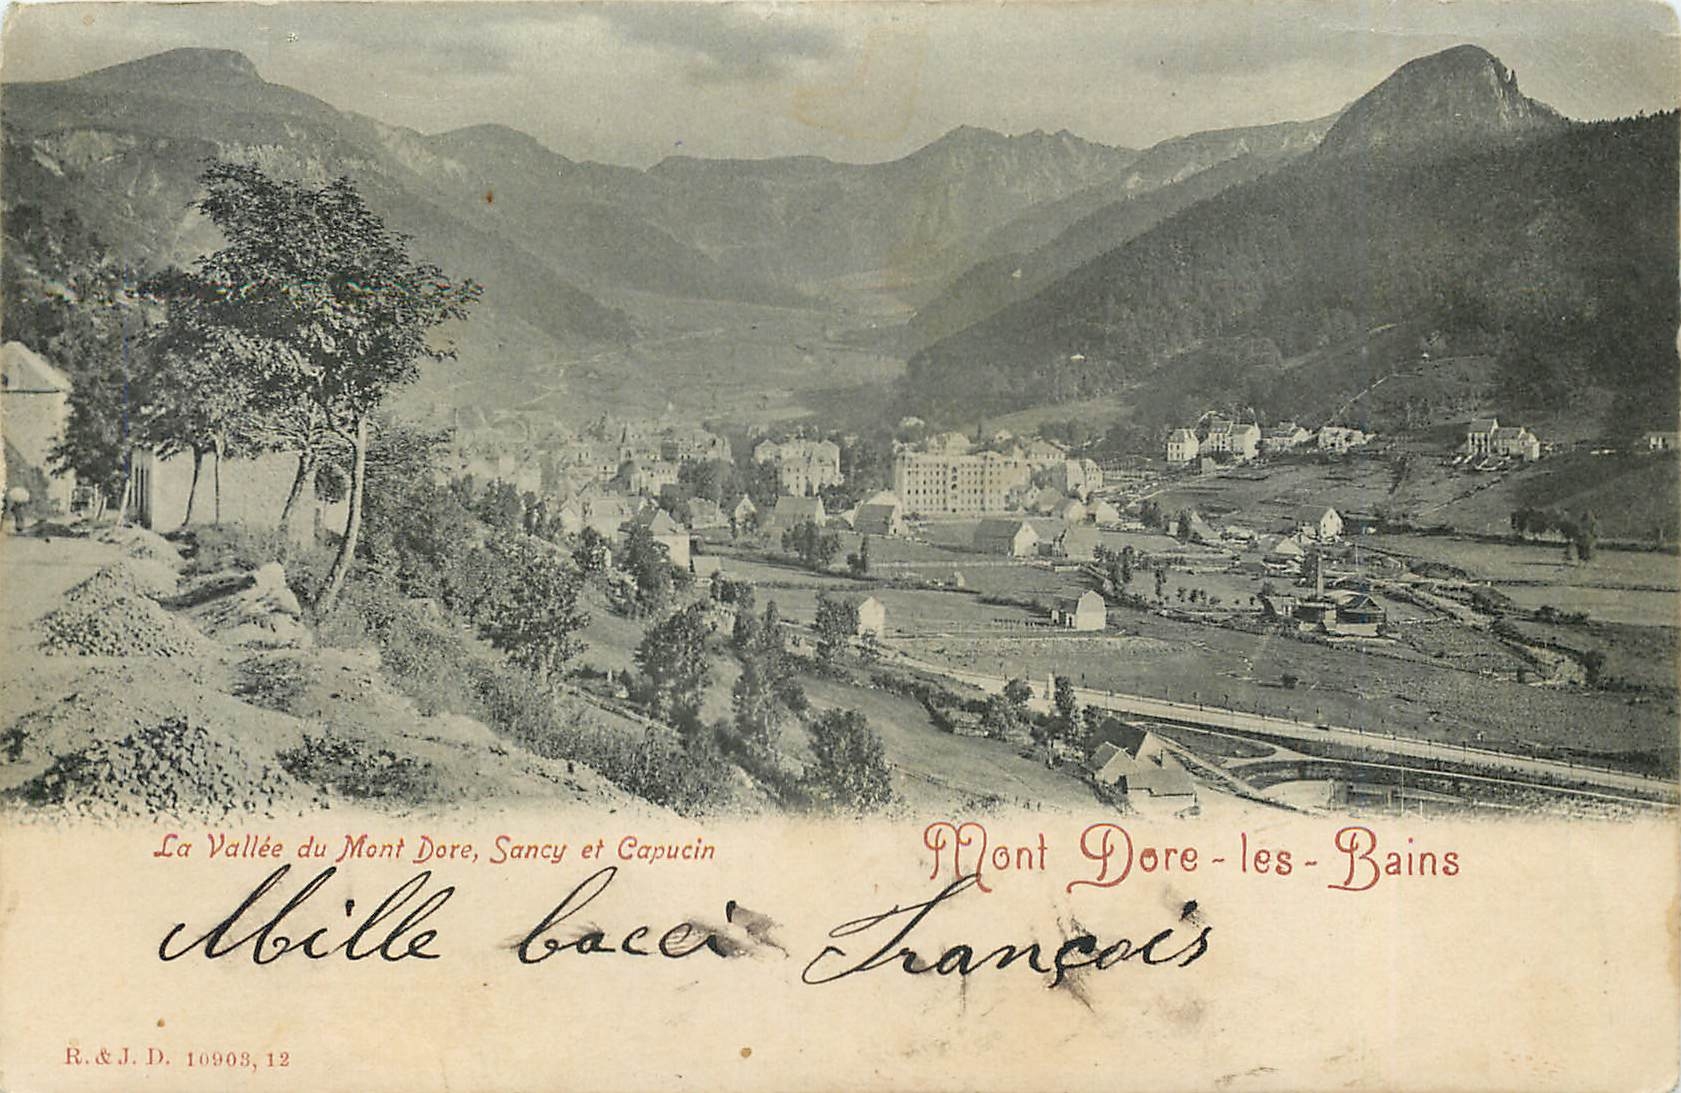 La Vallée du Mont Dore, Sancy et Capucin
Mont Dore-les-Bains
Mille bacci François
R. & J. D. 10903, 12